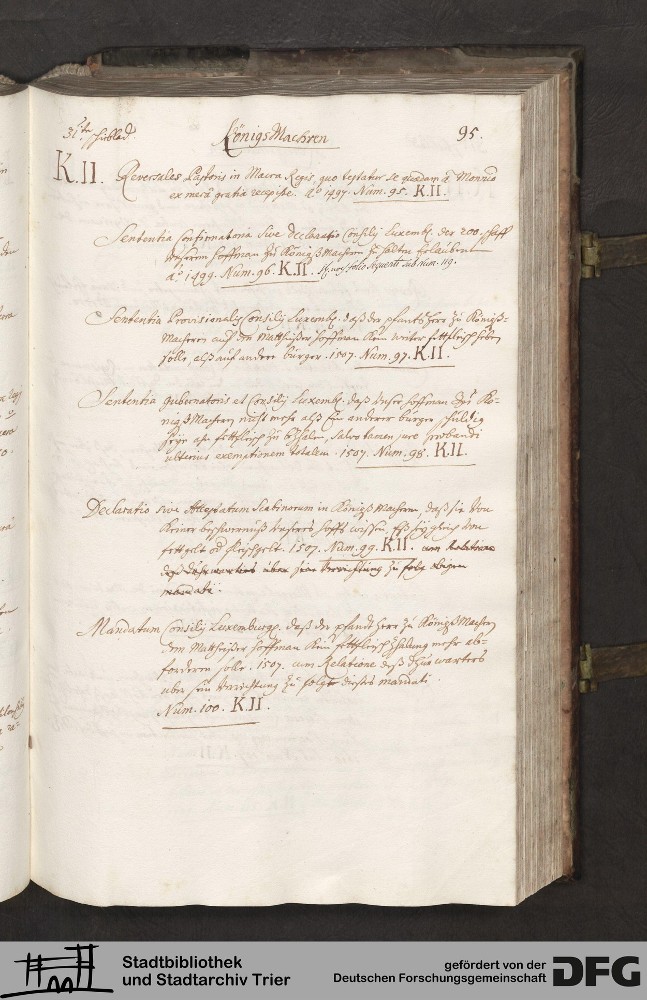 31te schublad
Königs Machren 95.
K.II. Reversales Pastoris in Macra Regis, quo testatur se quadam à Monrio
ex merâ gratiâ recepisse. aō 1497. Num. 95. K.II.
Sententia Confirmatoria sive declaratio Consilij Luxemb. der 200 schaff
unserem hoffman zu Königs Machren zu halten
aō 1499. Num. 96. K.II. folio sequenti sub Num. 119.
Sententia Provisionalis Consilij Luxemb. daß der pfandtsherr zu Königs-
Machren auff den Matthyser hoffman kein weiter fettfleisch heben
solle, alß auff andere bürger. 1507. Num. 97. K.II.
Sententia Gubernatoris et Consilij Luxemb. daß unser hoffman des Kö-
nigs Machren nicht mehr alß ein anderer bürger schuldig
seye ahn fettfleisch zu bezahlen, salvo tamen jure probandi
ulterius exemptionem totalem. 1507. Num. 98. K.II.
Declaratio sive Attestatum Scabinorum in Königs Machren, daß sie von
keiner beschwernuß unsers hoffs wissen, Eß sey gleich von
fettgelt od fleischgelt. 1507. Num. 99. K.II. cum Relatione
deß Dohrwarters uber seine Verrichtung zu folg obigen
mandati.
Mandatum Consilij Luxemburg. daß der pfandtherr zu Königs Machren
dem Matthyser hoffman kein fettfleisch zahlung mehr ab-
forderen solle. 1507. cum Relatione deß Thürwarters
uber sein Verrichtung zu folgte dieses mandati.
Num. 100. K.II.
Stadtbibliothek
und Stadtarchiv Trier
gefördert von der
Deutschen Forschungsgemeinschaft
DFG